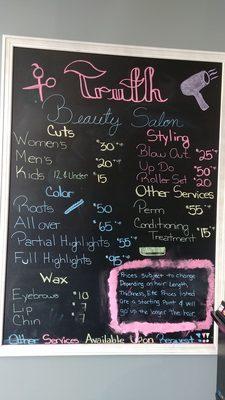 Truth
Beauty Salon
Cuts
Women's $30+up
Men's $20+up
Kids 12 & Under $15
Color
Roots $50
All over $65+up
Partial Highlights $55+up
Full Highlights $95+up
Wax
Eyebrows $10
Lip $7
Chin $7
Styling
Blow Out $25+up
Up Do $50
Roller Set $20
Other Services
Perm $55+up
Conditioning
Treatment $15+up
Prices subject to change
Depending on hair Length,
Thickness, Etc. Prices listed
are a Starting Point & will
go up the longer the hair
Other Services Available Upon Request